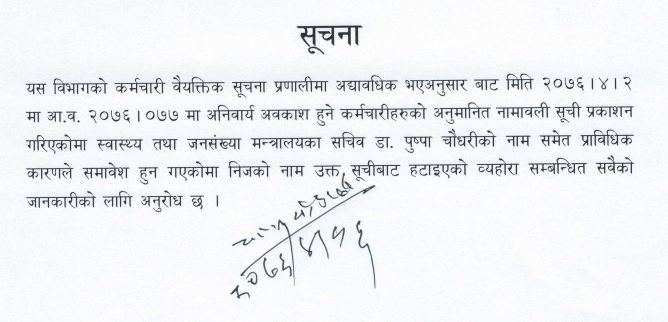 सूचना
यस विभागको कर्मचारी वैयक्तिक सूचना प्रणालीमा अद्यावधिक भएअनुसार बाट मिति २०७६।४।२
मा आ.व. २०७६।०७७ मा अनिवार्य अवकाश हुने कर्मचारीहरुको अनुमानित नामावली सूची प्रकाशन
गरिएकोमा स्वास्थ्य तथा जनसंख्या मन्त्रालयका सचिव डा. पुष्पा चौधरीको नाम समेत प्राविधिक
कारणले समावेश हुन गएकोमा निजको नाम उक्त सूचीबाट हटाइएको व्यहोरा सम्बन्धित सवैको
जानकारीको लागि अनुरोध छ ।